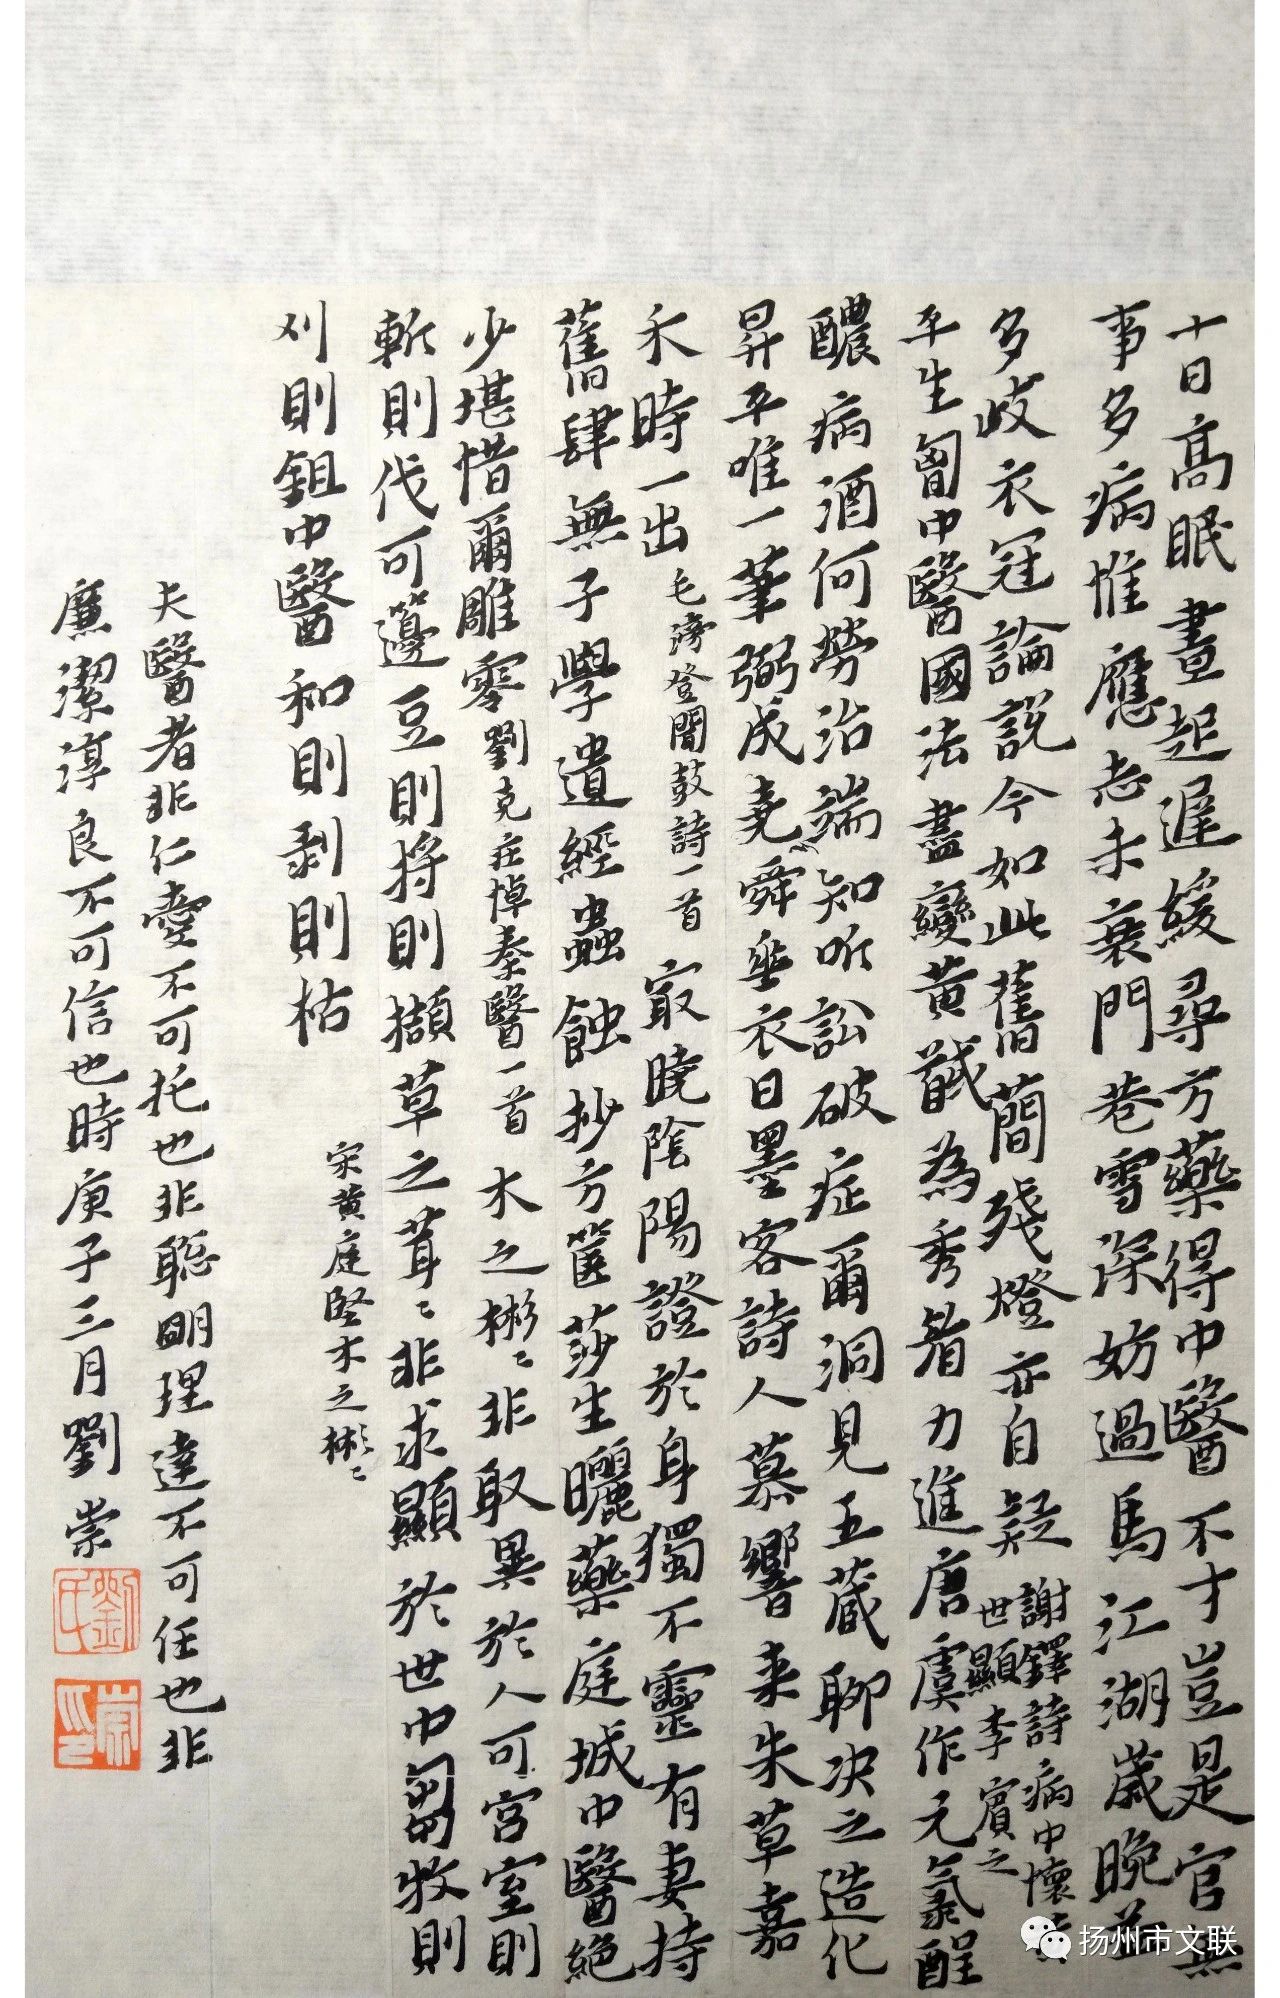 十日高眠晝起遲緩尋方藥得中醫不才豈是官無
事多病惟應志未衰門巷雪深妨過馬江湖歲晚益
多岐衣冠論說今如此舊簡殘燈亦自疑
謝鐸詩病中懷黃
世顯李賓之
平生匈中醫國法盡變黄馘為秀眉力進唐虞作元氣酲
醲病酒何勞治端知听訟破症爾洞見五藏聊决之造化
昇平唯一筆弼成堯舜垂衣日墨客詩人慕響来朱草嘉
禾時一出 毛滂登聞鼓詩一首 寂曉陰陽證於身獨不靈有妻持
舊肆無子學遺經蟲蝕抄方篋莎生曬藥庭城中醫絕
少堪惜爾雕零 劉克莊悼秦醫一首 木之彬〻非取異於人可宮室則
斬則伐可籩豆則将則擷草之茸〻非求顯於世中芻牧則
刈則鉏中醫和則剥則枯
宋黄庭堅木之彬〻
夫醫者非仁愛不可托也非聰明理達不可任也非
廉潔淳良不可信也時庚子三月劉崇
劉氏
崇印
扬州市文联